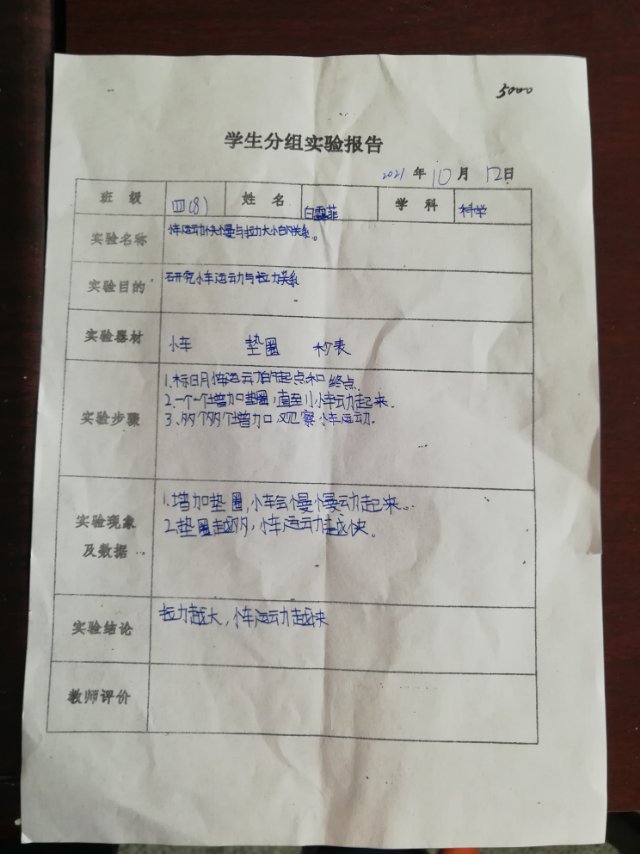 5000
学生分组实验报告
2021 年 10 月 12 日
班级 四(8) 姓名 白露菲 学科 科学
实验名称 小车运动快慢与拉力大小的关系。
实验目的 研究小车运动与拉力关系
实验器材 小车 垫圈 秒表
实验步骤 1.标明小车运动的起点和终点
2.一个个增加垫圈,直至小车动起来.
3.两个两个增加观察小车运动.
实验现象及数据 1.增加垫圈,小车会慢慢动起来。
2.垫圈越多,小车运动越快。
实验结论 拉力越大,小车运动越快
教师评价